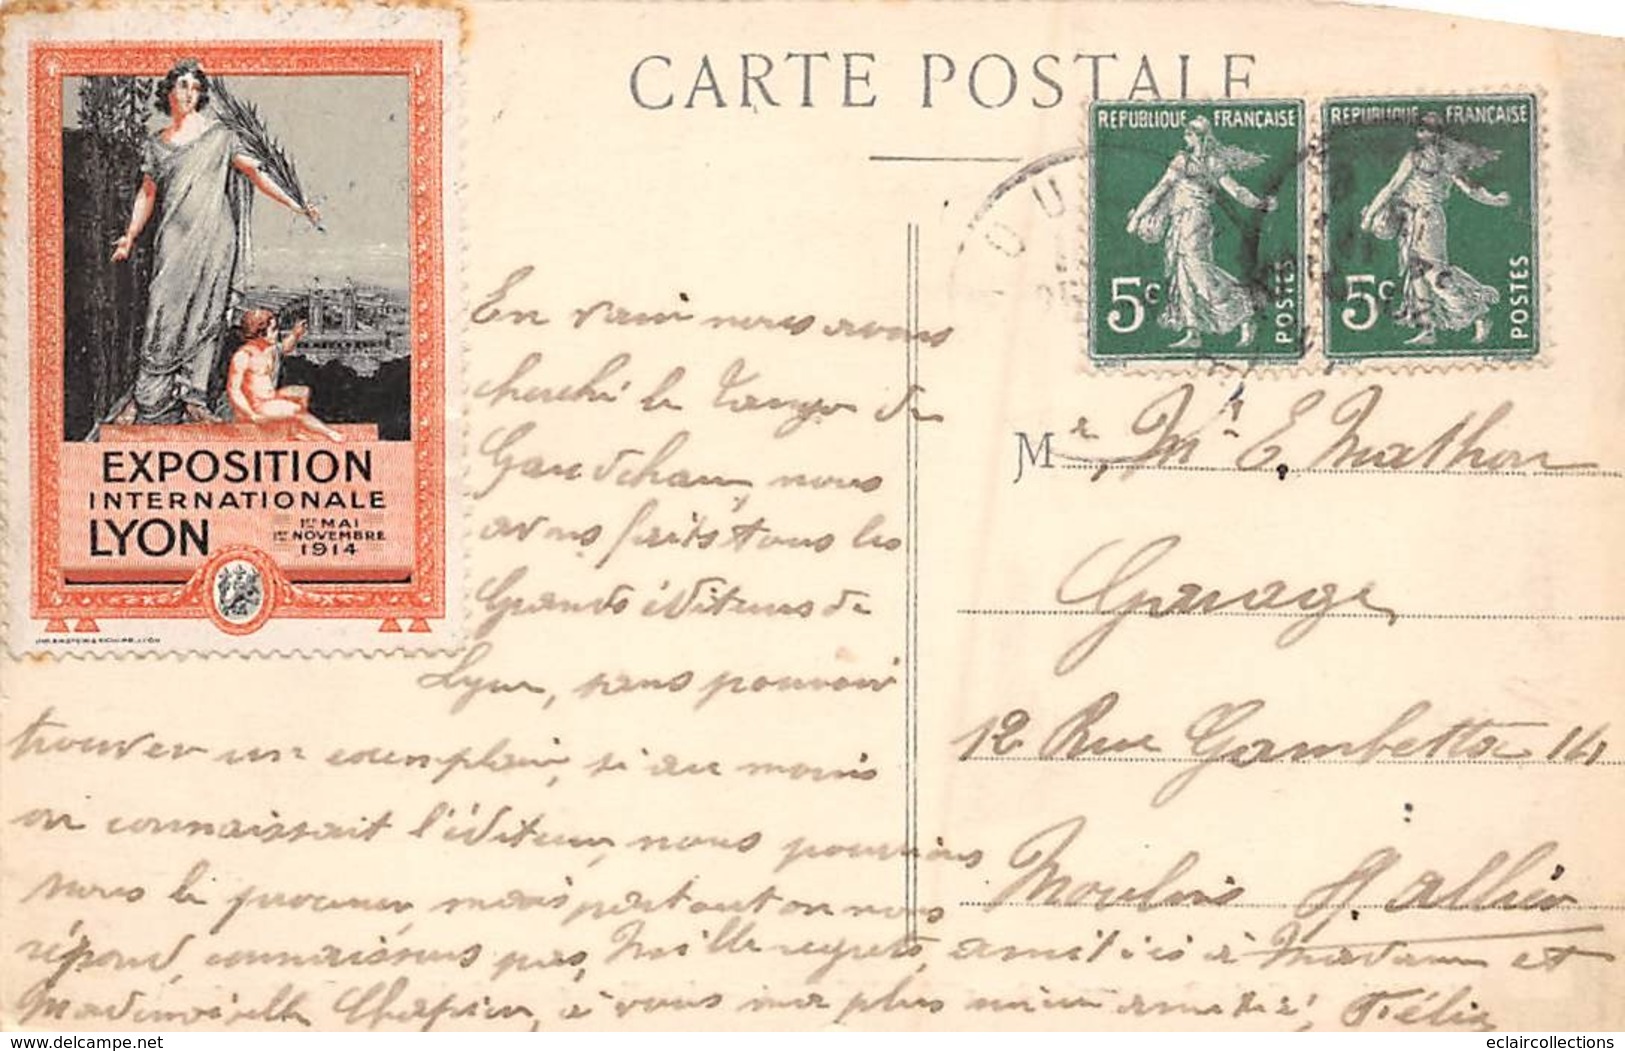 CARTE POSTALE
REPUBLIQUE FRANÇAISE
5c
POSTES
REPUBLIQUE FRANÇAISE
5c
POSTES
EXPOSITION
INTERNATIONALE
LYON
1er MAI
1er NOVEMBRE
1914
En vain nous avons
cherché le Tango de
nous
avons faits tous les
Grands éditeurs de
Lyon, sans pouvoir
trouver un exemplair, si au moins
on connaissait l'éditeur, nous pourrions
nous le procurer, mais partout on nous
répond, connaissons pas, Mille regrets, amitiés à Madame et
Mademoiselle Chapier, à vous ma plus amitié, Félix
Mr, Mr E, Mathon
Garage
12 Rue Gambetta 14
Moulins s/ allier
eclaircollections